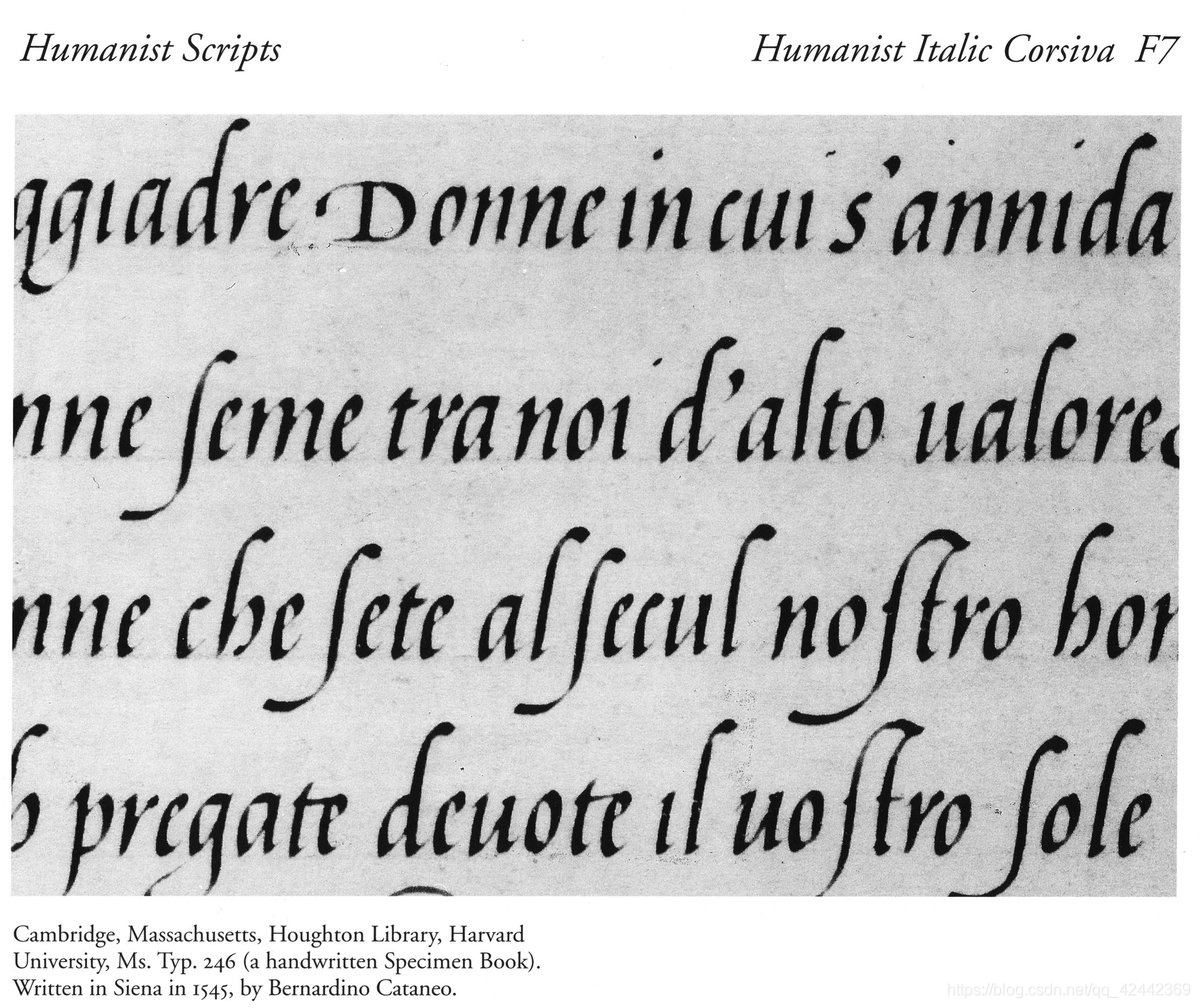 Humanist Scripts
Humanist Italic Corsiva F7
ggiadre Donne in cui s'annida
nne ſeme tra noi d'alto ualore
nne che ſete al ſecul noſtro hon
pregate deuote il uoſtro ſole
Cambridge, Massachusetts, Houghton Library, Harvard
University, Ms. Typ. 246 (a handwritten Specimen Book).
Written in Siena in 1545, by Bernardino Cataneo.
https://blog.csdn.net/qq_42442369